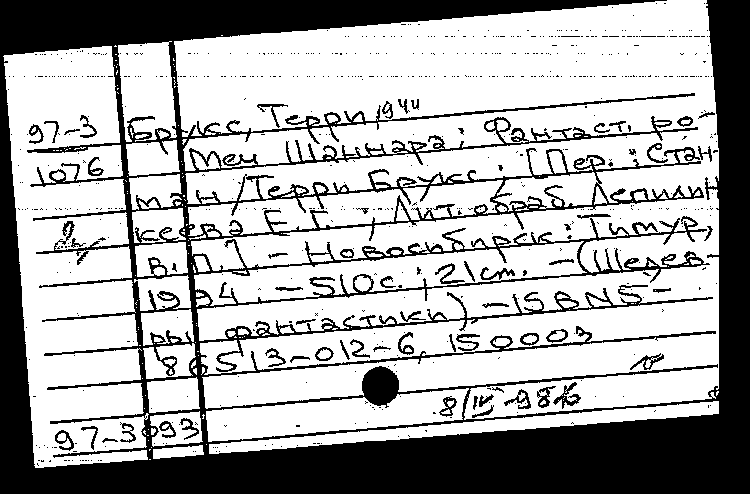 97-3 Брукс, Терри, 1944
1076 Меч Шаннара: Фантаст. ро-
ман / Терри Брукс; [Пер.: Стан-
кеева Е.Г.; Лит. обраб. Лепилин
В.П.]. - Новосибирск: Тимур,
1994. - 510с.; 21см. - (Шедев-
ры фантастики). - ISBN 5-
86513-012-6, 150003
8/IV-98
97-3093